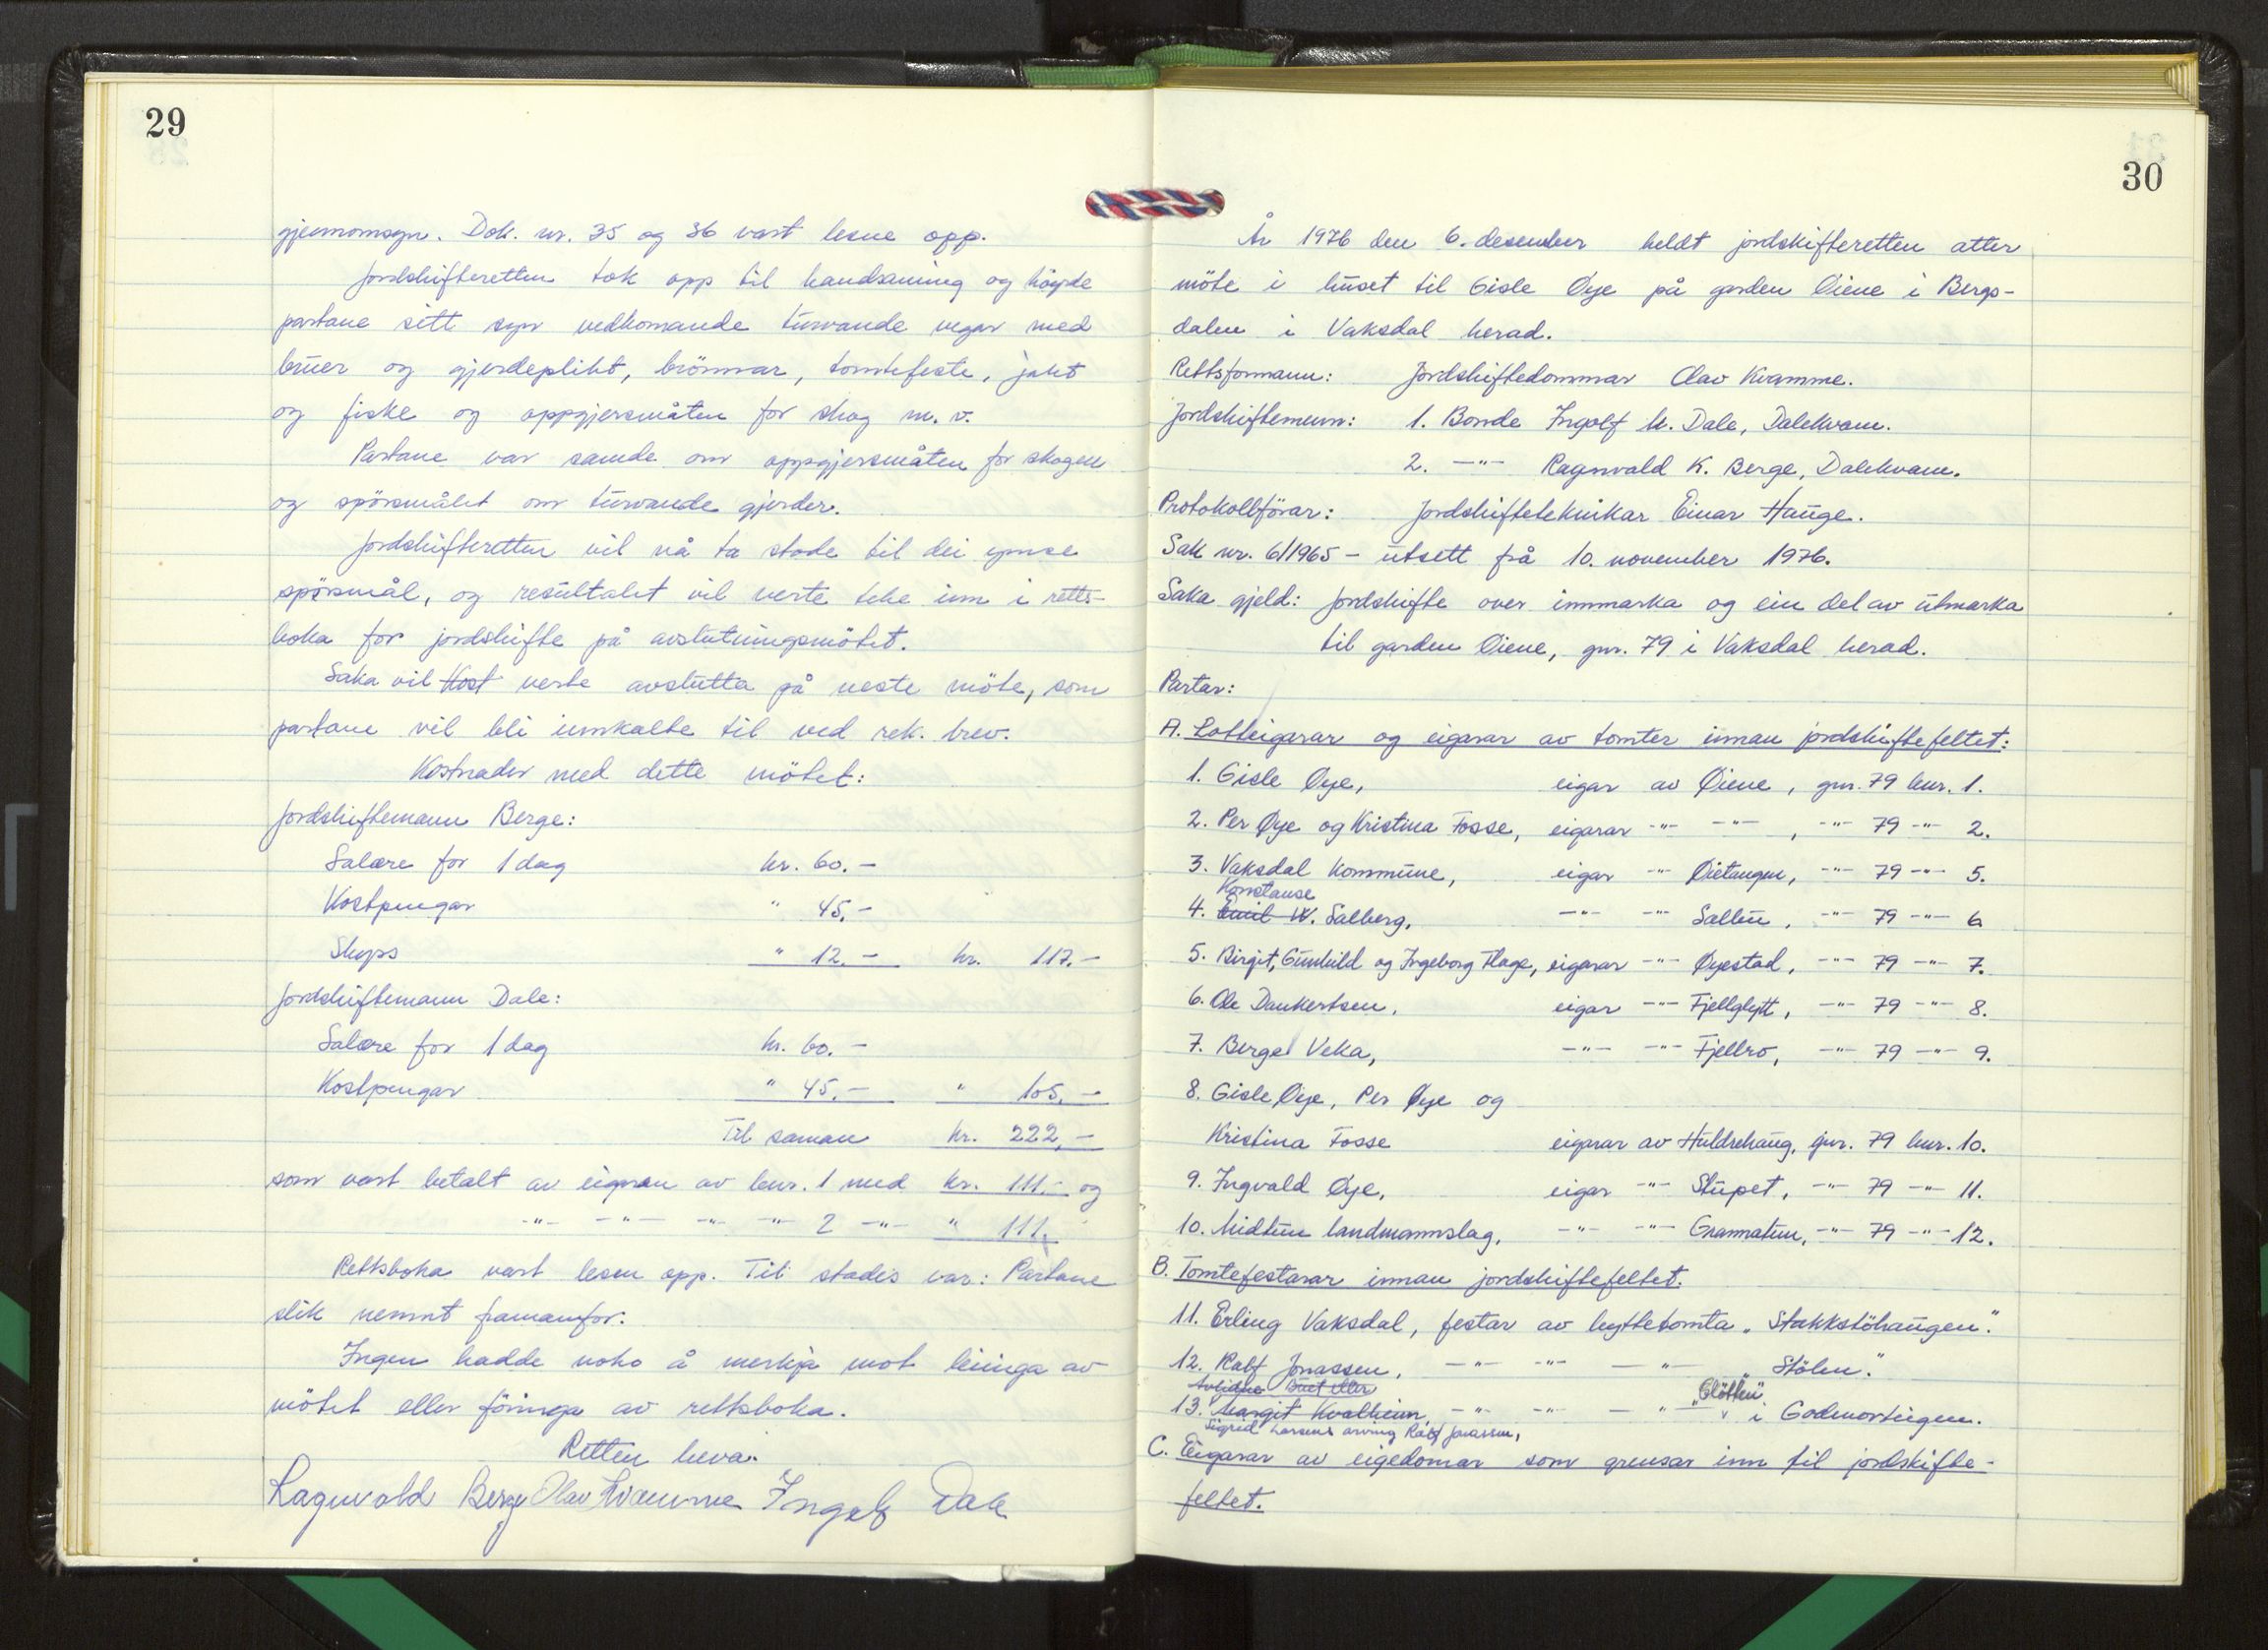 29
gjennomsyn. Dok. nr. 35 og 36 vart lesne opp.
Jordskifteretten tok opp til handsaming og höyrde
partane sitt syn vedkomande turvande vegar med
bruer og gjerdeplikt, brönnar, tomtefeste, jakt
og fiske og oppgjersmåten for skog m.v.
Partane var samde om oppgjersmåten for skogen
og spörsmålet om turvande gjerder.
Jordskifteretten vil nå ta stode til dei ymse
spörsmål, og resultatet vil verte teke inn i retts-
boka for jordskifte på avslutningsmötet.
Saka vil Kost verte avslutta på neste möte, som
partane vil bli innkalte til ved rek. brev.
Kostnader med dette mötet:
Jordskiftemann Berge:
Salære for 1 dag kr. 60.-
Kostpengar " 45.-
Skyss " 12.- kr. 117.-
Jordskiftemann Dale:
Salære for 1 dag kr. 60.-
Kostpengar " 45.- " 105.-
Til saman kr. 222,-
som vart betalt av eigaren av bnr. 1 med kr. 111.- og
-"- -"- -"- -"- 2 -"- " 111.
Rettsboka vart lesen opp. Til stades var: Partane
slik nemnt framanfor.
Ingen hadde noko å merkja mot leiinga av
mötet eller föringa av rettsboka.
Retten heva.
Ragnvald Berge Olav Kvamme Ingolf Dale
30
År 1976 den 6. desember heldt jordskifteretten atter
möte i huset til Gisle Øye på garden Øiene i Bergs-
dalen i Vaksdal herad.
Rettsformann: Jordskiftedommar Olav Kvamme.
Jordskiftemenn: 1. Bonde Ingolf M. Dale, Dalekvam.
2. -"- Ragnvald K. Berge, Dalekvam.
Protokollförar: Jordskifteteknikar Einar Hauge.
Sak nr. 6/1965 - utsett frå 10. november 1976.
Saka gjeld: Jordskifte over innmarka og ein del av utmarka
til garden Øiene, gnr. 79 i Vaksdal herad.
Partar:
A. Lotteigarar og eigarar av tomter innan jordskiftefeltet:
1. Gisle Øye, eigar av Øiene, gnr. 79 bnr. 1.
2. Per Øye og Kristina Fosse, eigarar -"- -"- , -"- 79 -"- 2.
3. Vaksdal kommune, eigar -"- Øietangen, -"- 79 -"- 5.
Konstanse
4. Emil W. Salberg, -"- -"- Solbu, -"- 79 -"- 6
5. Birgit, Gunhild og Ingeborg Flage, eigarar -"- Øyestad, -"- 79 -"- 7.
6. Ole Dankertsen, eigar -"- Fjellglytt, -"- 79 -"- 8.
7. Berge Veka, -"- -"- Fjellro, -"- 79 -"- 9.
8. Gisle Øye, Per Øye og
Kristina Fosse eigarar av Huldrehaug, gnr. 79 bnr. 10.
9. Ingvald Øye, eigar -"- Stupet, -"- 79 -"- 11.
10. Midtun landmannslag, -"- -"- Grannatun, -"- 79 -"- 12.
B. Tomtefestarar innan jordskiftefeltet.
11. Erling Vaksdal, festar av hyttetomta "Stakkstöhaugen".
12. Ralf Jonassen, -"- -"- -"- "Stölen".
Avlidne Buet etter
13. Margit Kvalheim, -"- -"- -"- "Slöttli" i Godmortingen.
Sigrid Larsens arving Ralf Jonassen,
C. Eigarar av eigedomar som grensar inn til jordskifte-
feltet.